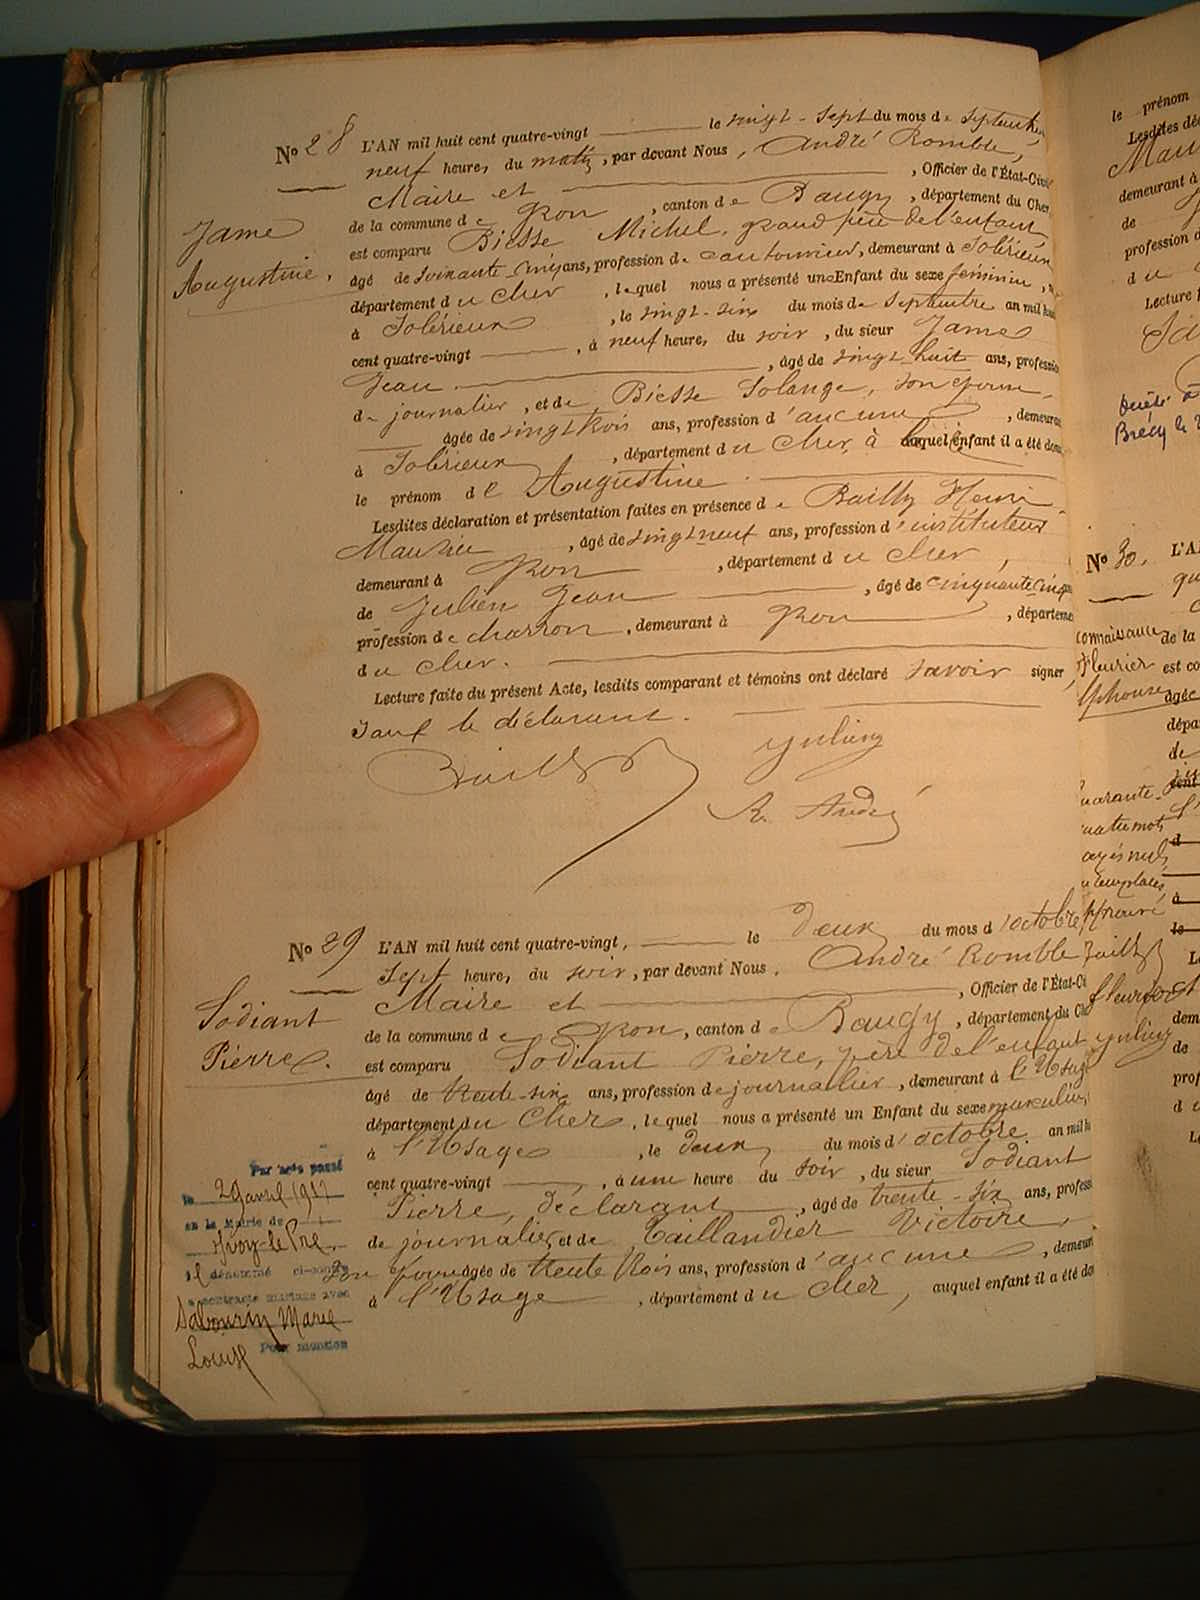 No 28 L'AN mil huit cent quatre-vingt le vingt-sept du mois de Septembre
neuf heures du matin, par devant Nous, André Romble,
Maire et , Officier de l'État-Civil
de la commune de Gron, canton de Baugy, département du Cher
Jame
Augustine.
est comparu Biesse Michel, grand père de l'enfant
âgé de soixante-cinq ans, profession de cantonnier, demeurant à Solérieux
département du Cher, lequel nous a présenté une Enfant du sexe féminin,
à Solérieux, le vingt-six du mois de Septembre an mil huit
cent quatre-vingt, à neuf heures du soir, du sieur Jame
Jean , âgé de vingt-huit ans, profession
de journalier, et de Biesse Solange, son épouse
âgée de vingt trois ans, profession d'aucune, demeurant
à Solérieux, département du Cher, à laquel enfant il a été donné
le prénom de Augustine.
Lesdites déclaration et présentation faites en présence de Bailly Henri
Maurice, âgé de vingt neuf ans, profession d'instituteur
demeurant à Gron, département du Cher,
de Julien Jean, âgé de cinquante cinq
profession de charron, demeurant à Gron, département
du Cher.
Lecture faite du présent Acte, lesdits comparant et témoins ont déclaré savoir signer,
sauf le déclarant.
Bailly Julien
R. André
No 29 L'AN mil huit cent quatre-vingt, le deux du mois d'octobre
sept heures du soir, par devant Nous, André Romble
Maire et , Officier de l'État-Ci
de la commune de Gron, canton de Baugy, département du Ch
Sodiant
Pierre.
est comparu Sodiant Pierre, père de l'enfant
âgé de trente-six ans, profession de journalier, demeurant à l'Usage
département du Cher, lequel nous a présenté un Enfant du sexe masculin,
à l'Usage, le deux du mois d'octobre an mil h
cent quatre-vingt, à une heure du soir, du sieur Sodiant
Pierre, déclarant, âgé de trente-six ans, profess
de journalier, et de Taillandier Victoire,
son épouse âgée de trente trois ans, profession d'aucune, demeur
à l'Usage, département du Cher, auquel enfant il a été do
Par acte passé
le 29 avril 1911
en la Mairie de
Ivoy-le-Pré
il dénommé ci-contre
a contracté mariage avec
Sabourin Marie
Louise
Pour mention
le prénom
Lesdites déc
demeurant à
de
profession d
du
Lecture
Brécy le
No 30. L'A
connaissance de la
Fleurier est co
Alphonse âgée
dépa
de
quarante-
quatre mots
rayés nuls
approuvé
Bailly
Fleurier
Julien